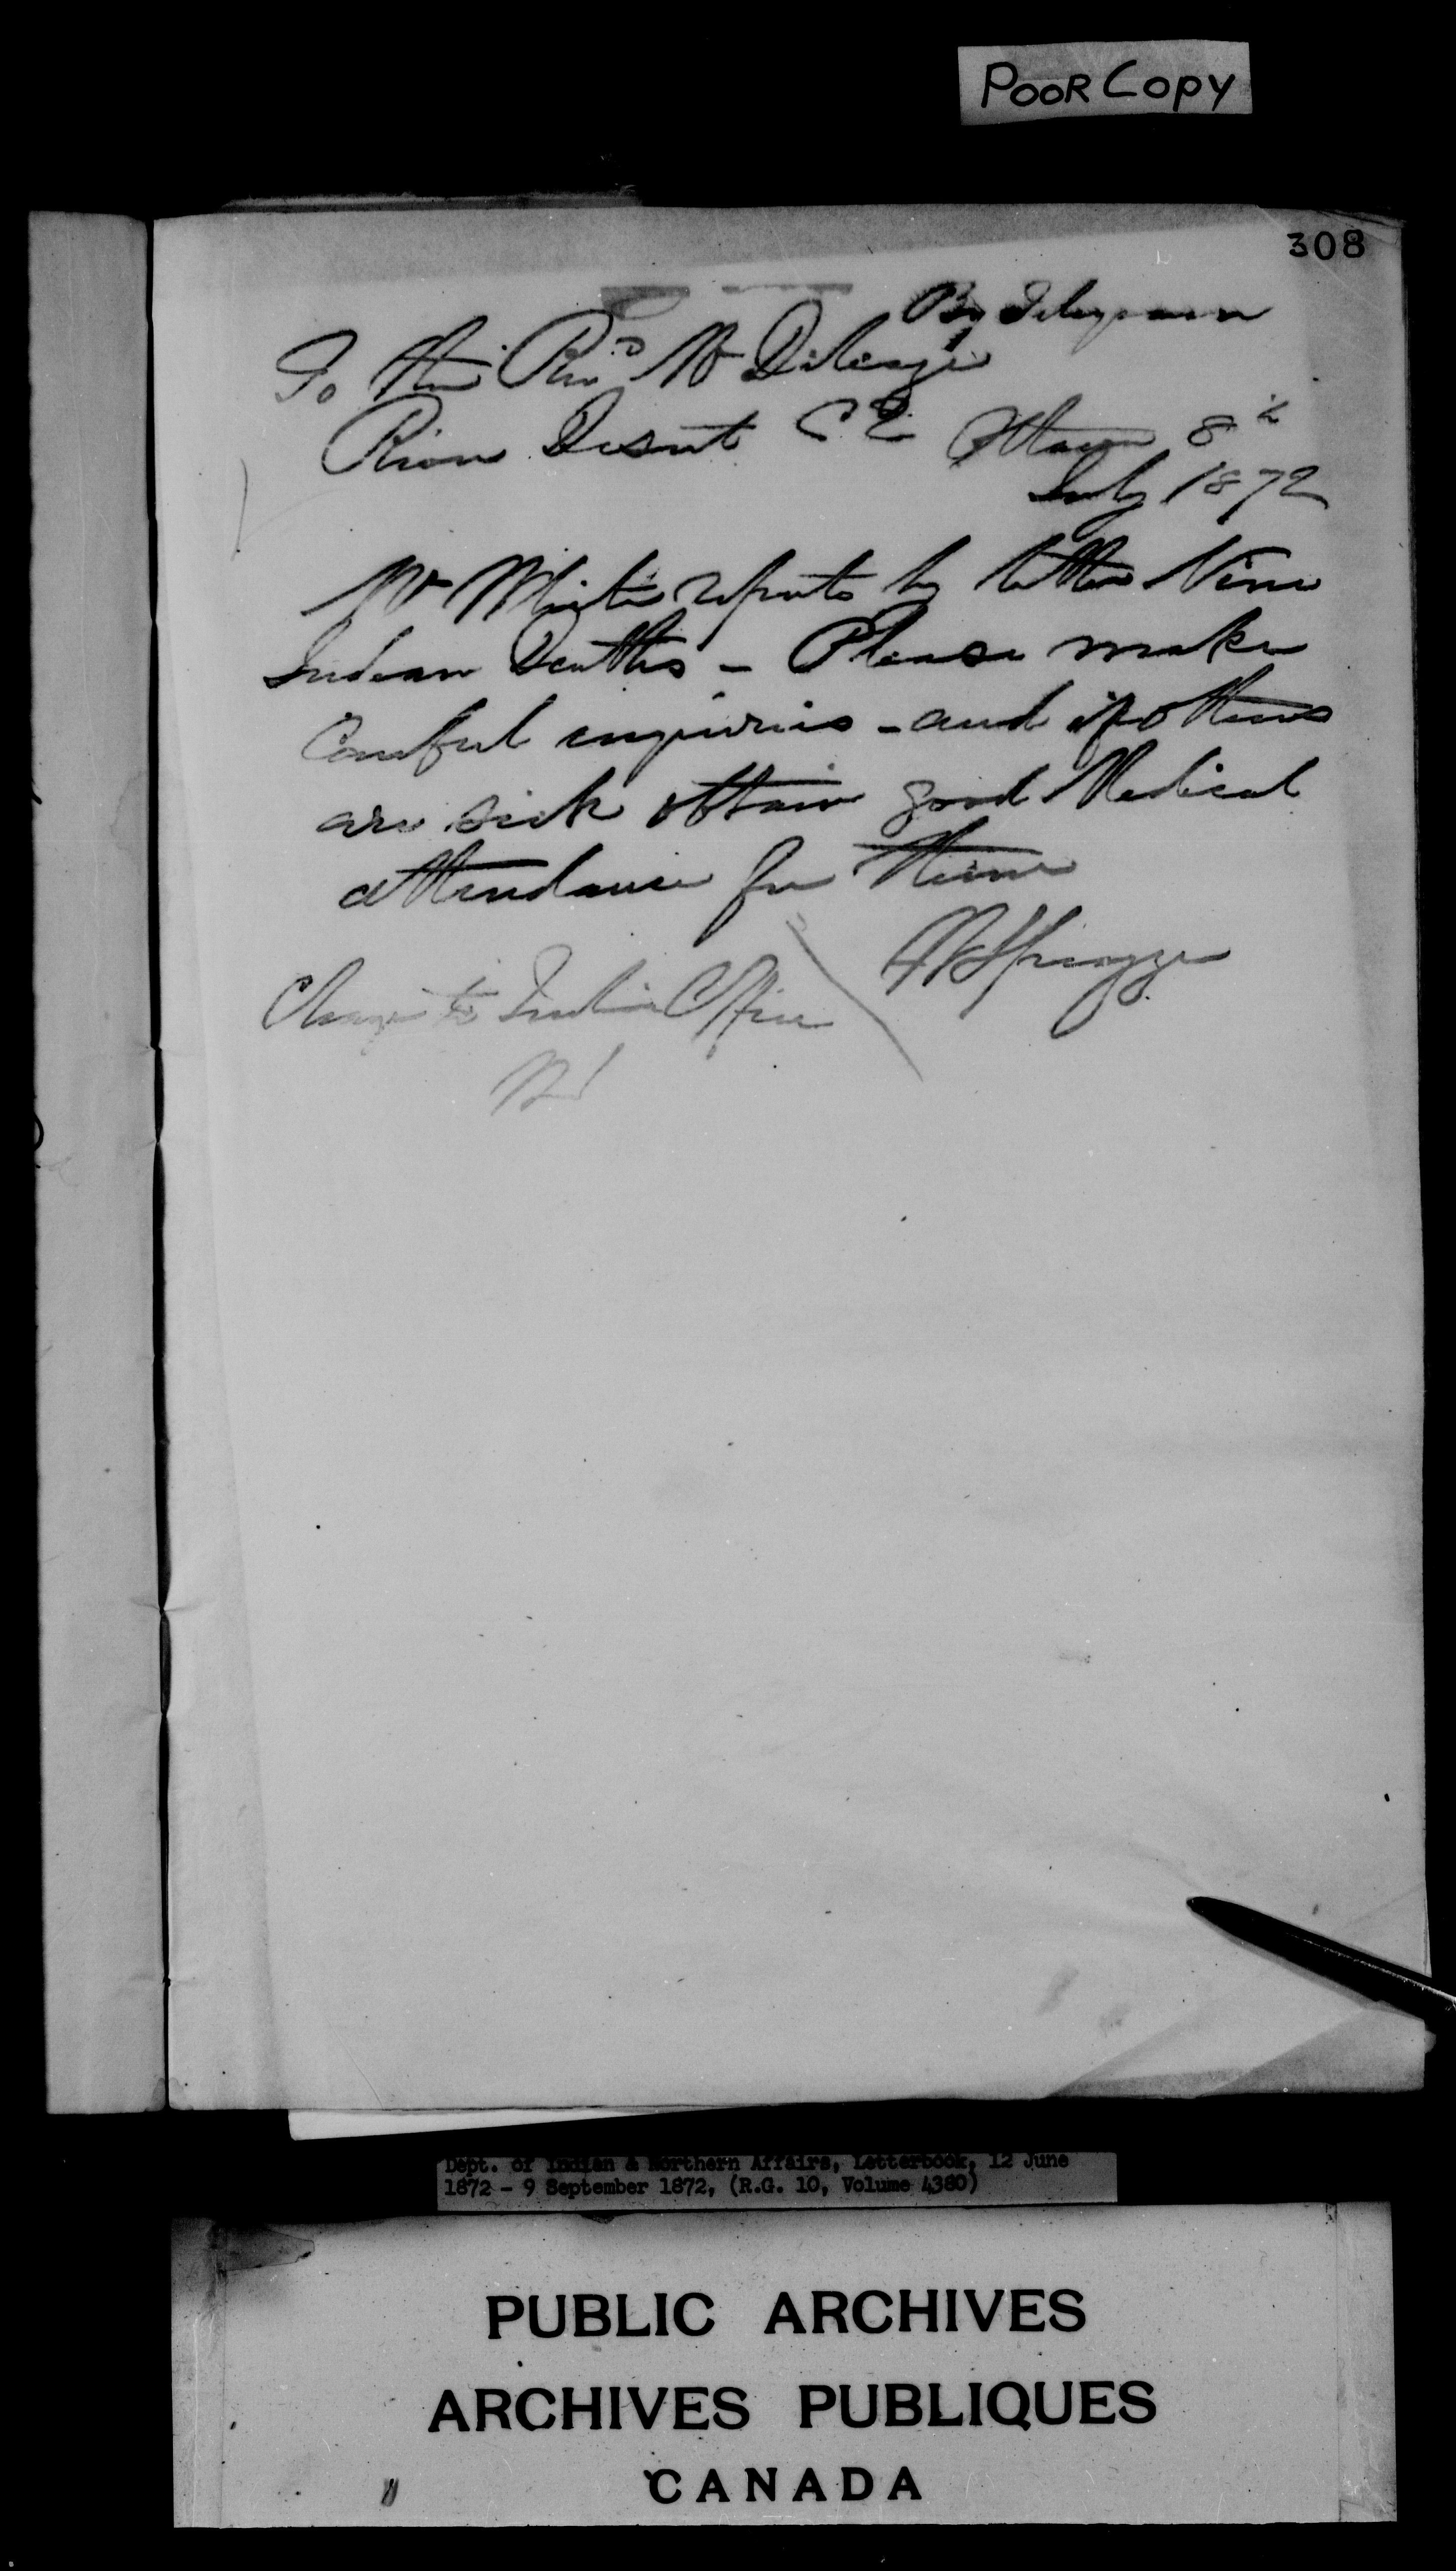 POOR COPY
308
By Telegram
To the Revd Mr Deleage
River Desert C. E.
Ottawa 8th
July 1872
Mr White reports by letter Nine
Indian Deaths - Please make
Careful enquiries - and if others
are sick obtain good Medical
attendance for them
Spragge
Charge to Indian Office
Dept. of Indian & Northern Affairs, Letterbook, 12 June
1872 - 9 September 1872, (R.G. 10, Volume 4380)
PUBLIC ARCHIVES
ARCHIVES PUBLIQUES
CANADA